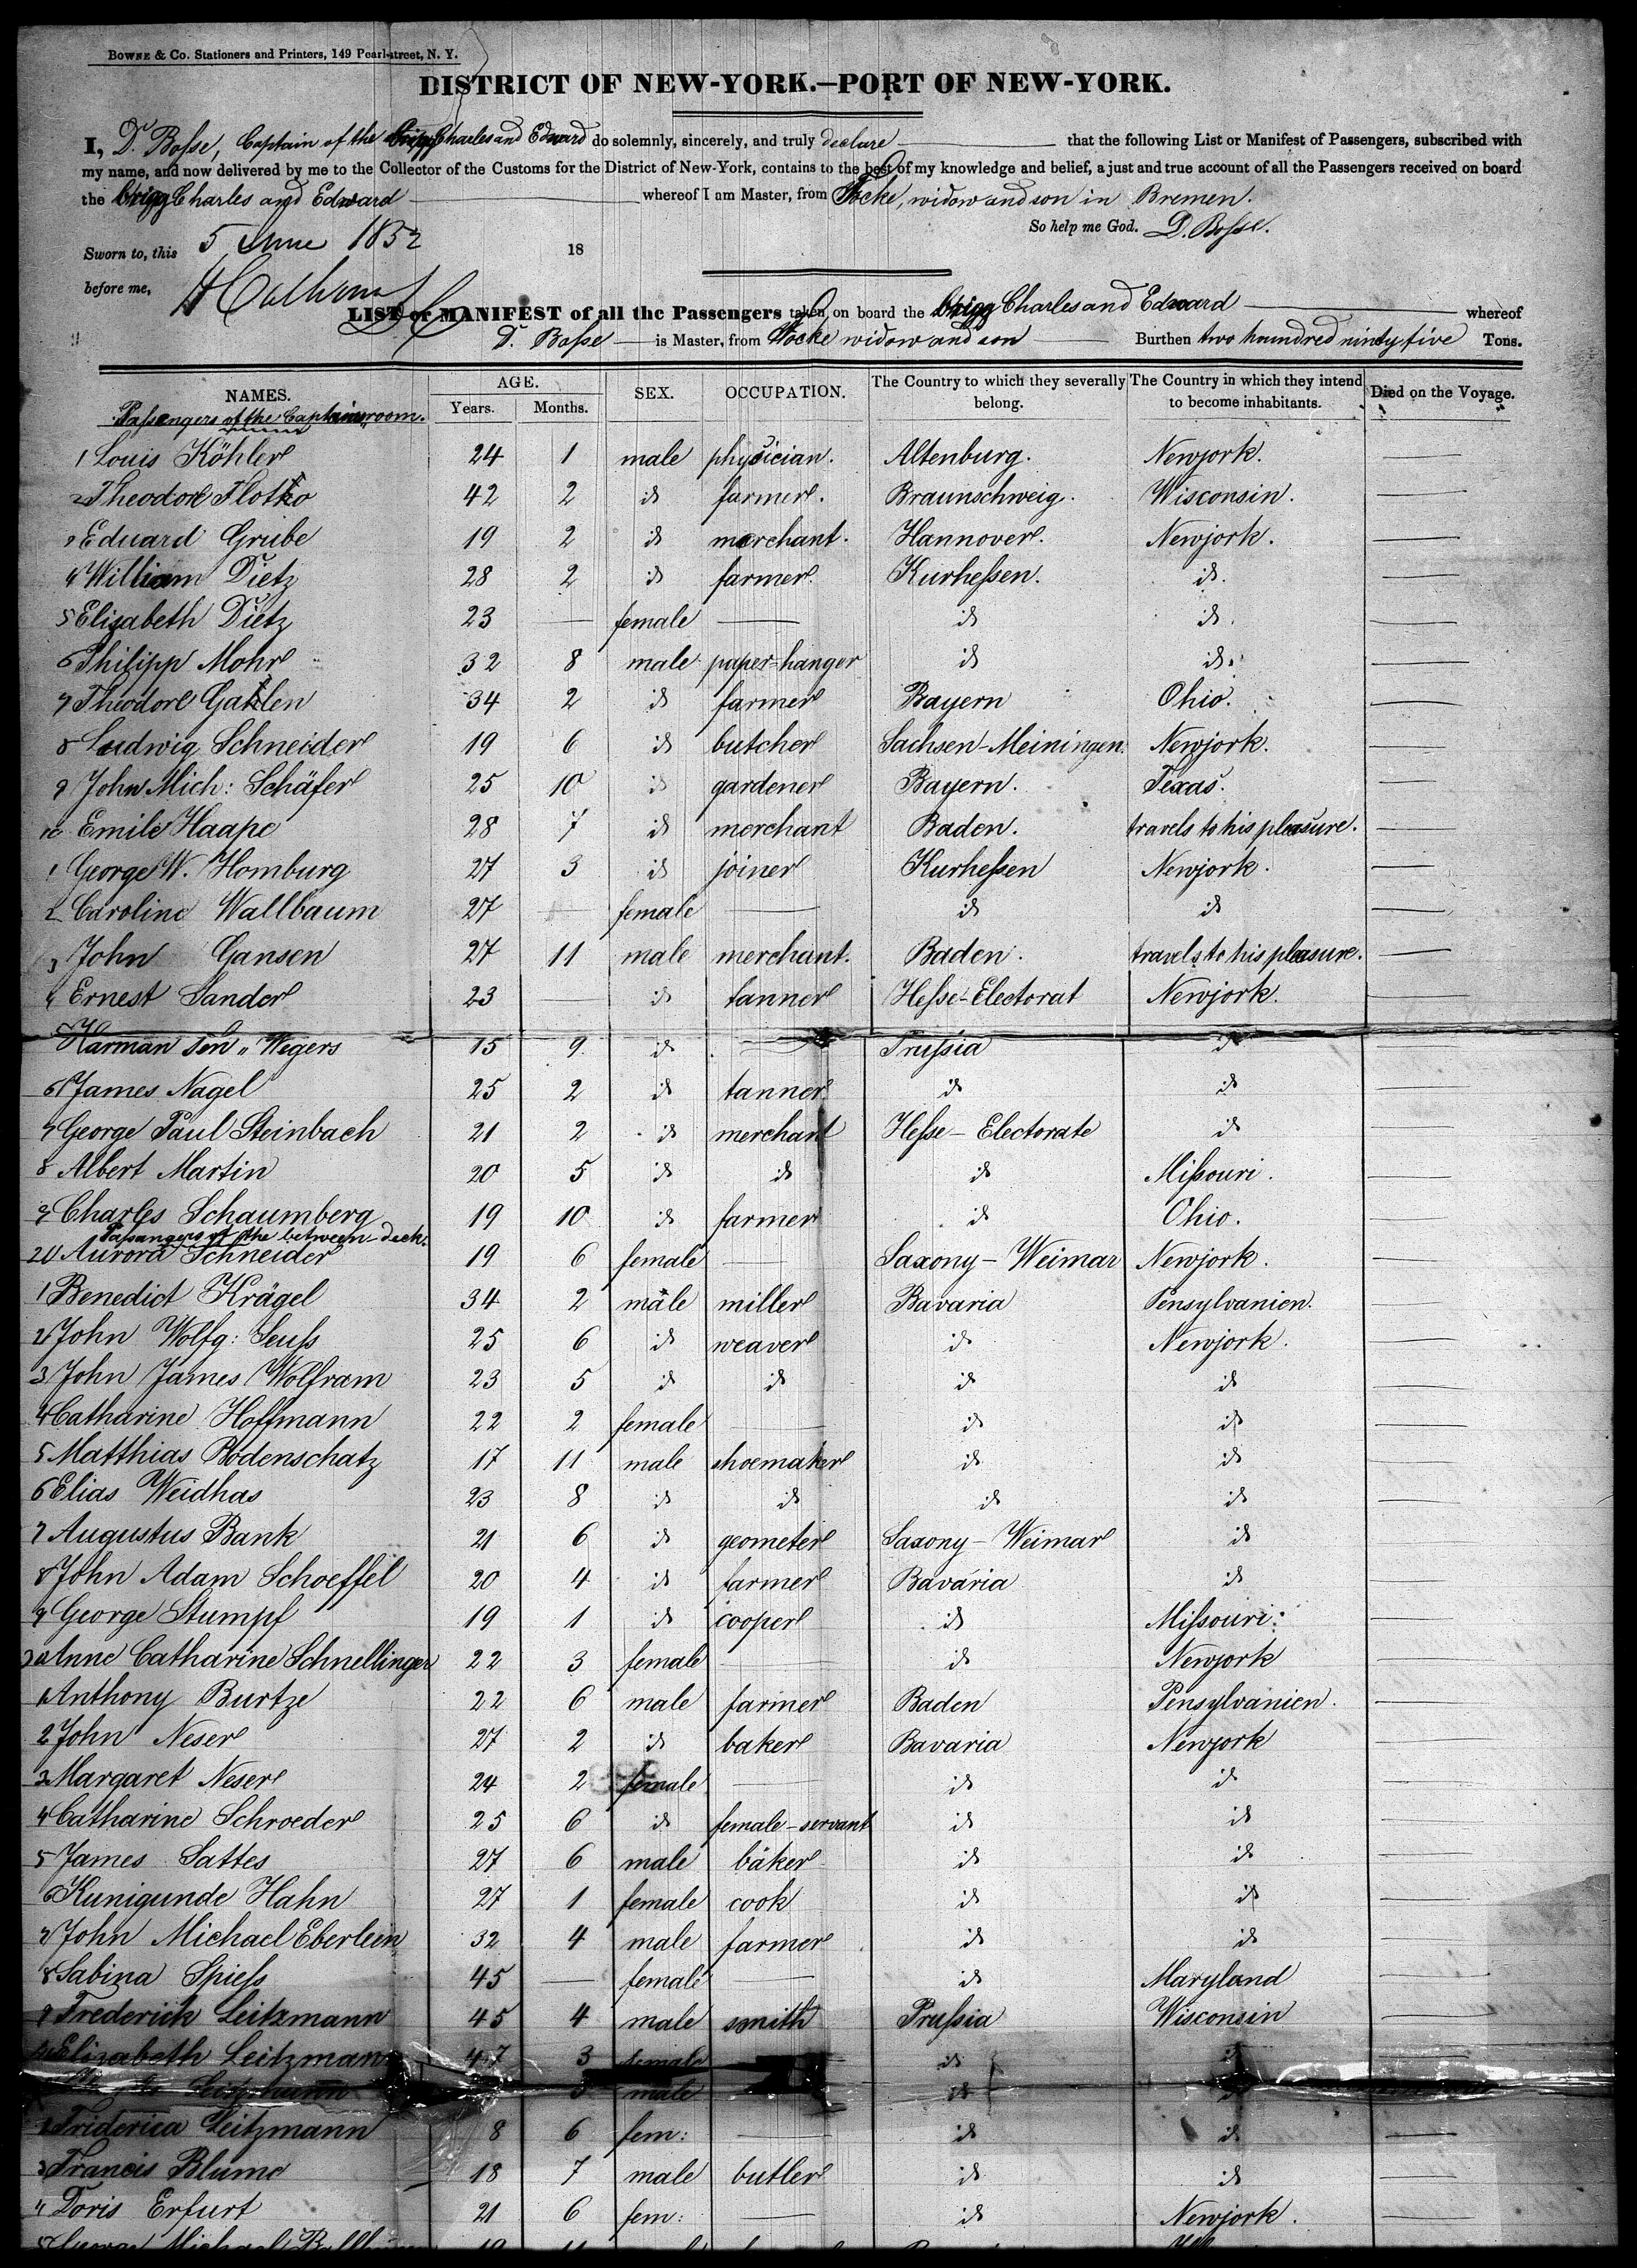 BOWNE & Co. Stationers and Printers, 149 Pearl-street, N. Y.
DISTRICT OF NEW-YORK.—PORT OF NEW-YORK.
I, D. Bosse, Captain of the brigg Charles and Edward do solemnly, sincerely, and truly declare that the following List or Manifest of Passengers, subscribed with
my name, and now delivered by me to the Collector of the Customs for the District of New-York, contains to the best of my knowledge and belief, a just and true account of all the Passengers received on board
the brigg Charles and Edward whereof I am Master, from Tocke, widow and son in Bremen.
So help me God. D. Bosse.
Sworn to, this 5 June 1852 18
before me,
LIST or MANIFEST of all the Passengers taken on board the brigg Charles and Edward whereof
D. Bosse is Master, from Tocke widow and son Burthen two houndred ninty five Tons.
NAMES. AGE. Years. Months. SEX. OCCUPATION. The Country to which they severally belong. The Country in which they intend to become inhabitants. Died on the Voyage.
Passengers of the Captains room.
1 Louis Köhler 24 1 male physician. Altenburg. Newjork. —
2 Theodor Flotho 42 2 id farmer. Braunschweig. Wisconsin. —
3 Eduard Grube 19 2 id merchant. Hannover. Newjork. —
4 William Dietz 28 2 id farmer. Kurhessen. id. —
5 Elisabeth Dietz 23 — female — id id. —
6 Philipp Mohr 32 8 male paper-hanger id id. —
7 Theodor Gahlen 34 2 id farmer Bayern Ohio. —
8 Ludwig Schneider 19 6 id butcher Sachsen-Meiningen. Newjork. —
9 John Mich: Schäfer 25 10 id gardener Bayern. Texas. —
10 Emile Haape 28 7 id merchant Baden. travels to his pleasure. —
1 George W. Homburg 27 3 id joiner Kurhessen Newjork. —
2 Caroline Wallbaum 27 — female — id id —
3 John Gansen 27 11 male merchant. Baden. travels to his pleasure. —
4 Ernest Sander 23 — id tanner Hesse-Electorat Newjork. —
5 Harman Wegers 15 9 id — Prussia id —
6 James Nagel 25 2 id tanner id id —
7 George Paul Steinbach 21 2 id merchant Hesse-Electorate id —
8 Albert Martin 20 5 id id id Missouri. —
9 Charles Schaumberg 19 10 id farmer id Ohio. —
Pasangers of the between-deck.
20 Aurora Schneider 19 6 female — Saxony-Weimar Newjork. —
1 Benedict Krägel 34 2 male miller Bavaria Pensylvanien. —
2 John Wolfg: Seuss 25 6 id weaver id Newjork. —
3 John James Wolfram 23 5 id id id id —
4 Catharine Hoffmann 22 2 female — id id —
5 Matthias Bodenschatz 17 11 male shoemaker id id —
6 Elias Weidhas 23 8 id id id id —
7 Augustus Bank 21 6 id geometer Saxony-Weimar id —
8 John Adam Schoeffel 20 4 id farmer Bavaria id —
9 George Stumpf 19 1 id cooper id Missouri: —
30 Anne Catharine Schnellinger 22 3 female — id Newjork —
1 Anthony Burtze 22 6 male farmer Baden Pensylvanien. —
2 John Neser 27 2 id baker Bavaria Newjork —
3 Margaret Neser 24 2 female — id id —
4 Catharine Schroeder 25 6 id female-servant id id —
5 James Sattes 27 6 male baker id id —
6 Kunigunde Hahn 27 1 female cook id id —
7 John Michael Eberlein 32 4 male farmer id id —
8 Sabina Spiess 45 — female — id Maryland —
9 Frederick Leitzmann 45 4 male smith Prussia Wisconsin —
40 Elizabeth Leitzmann 47 3 female id id
Leitzmann 3 male id id
2 Friderica Leitzmann 8 6 fem: — id id —
3 Francis Blume 18 7 male butler id id —
4 Doris Erfurt 21 6 fem: — id Newjork. —
5 George Michael